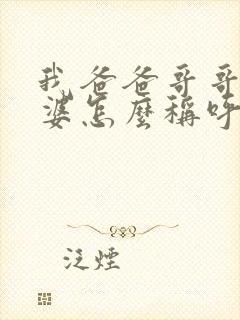 我爸爸哥哥
婆怎麼稱呼
泛煙